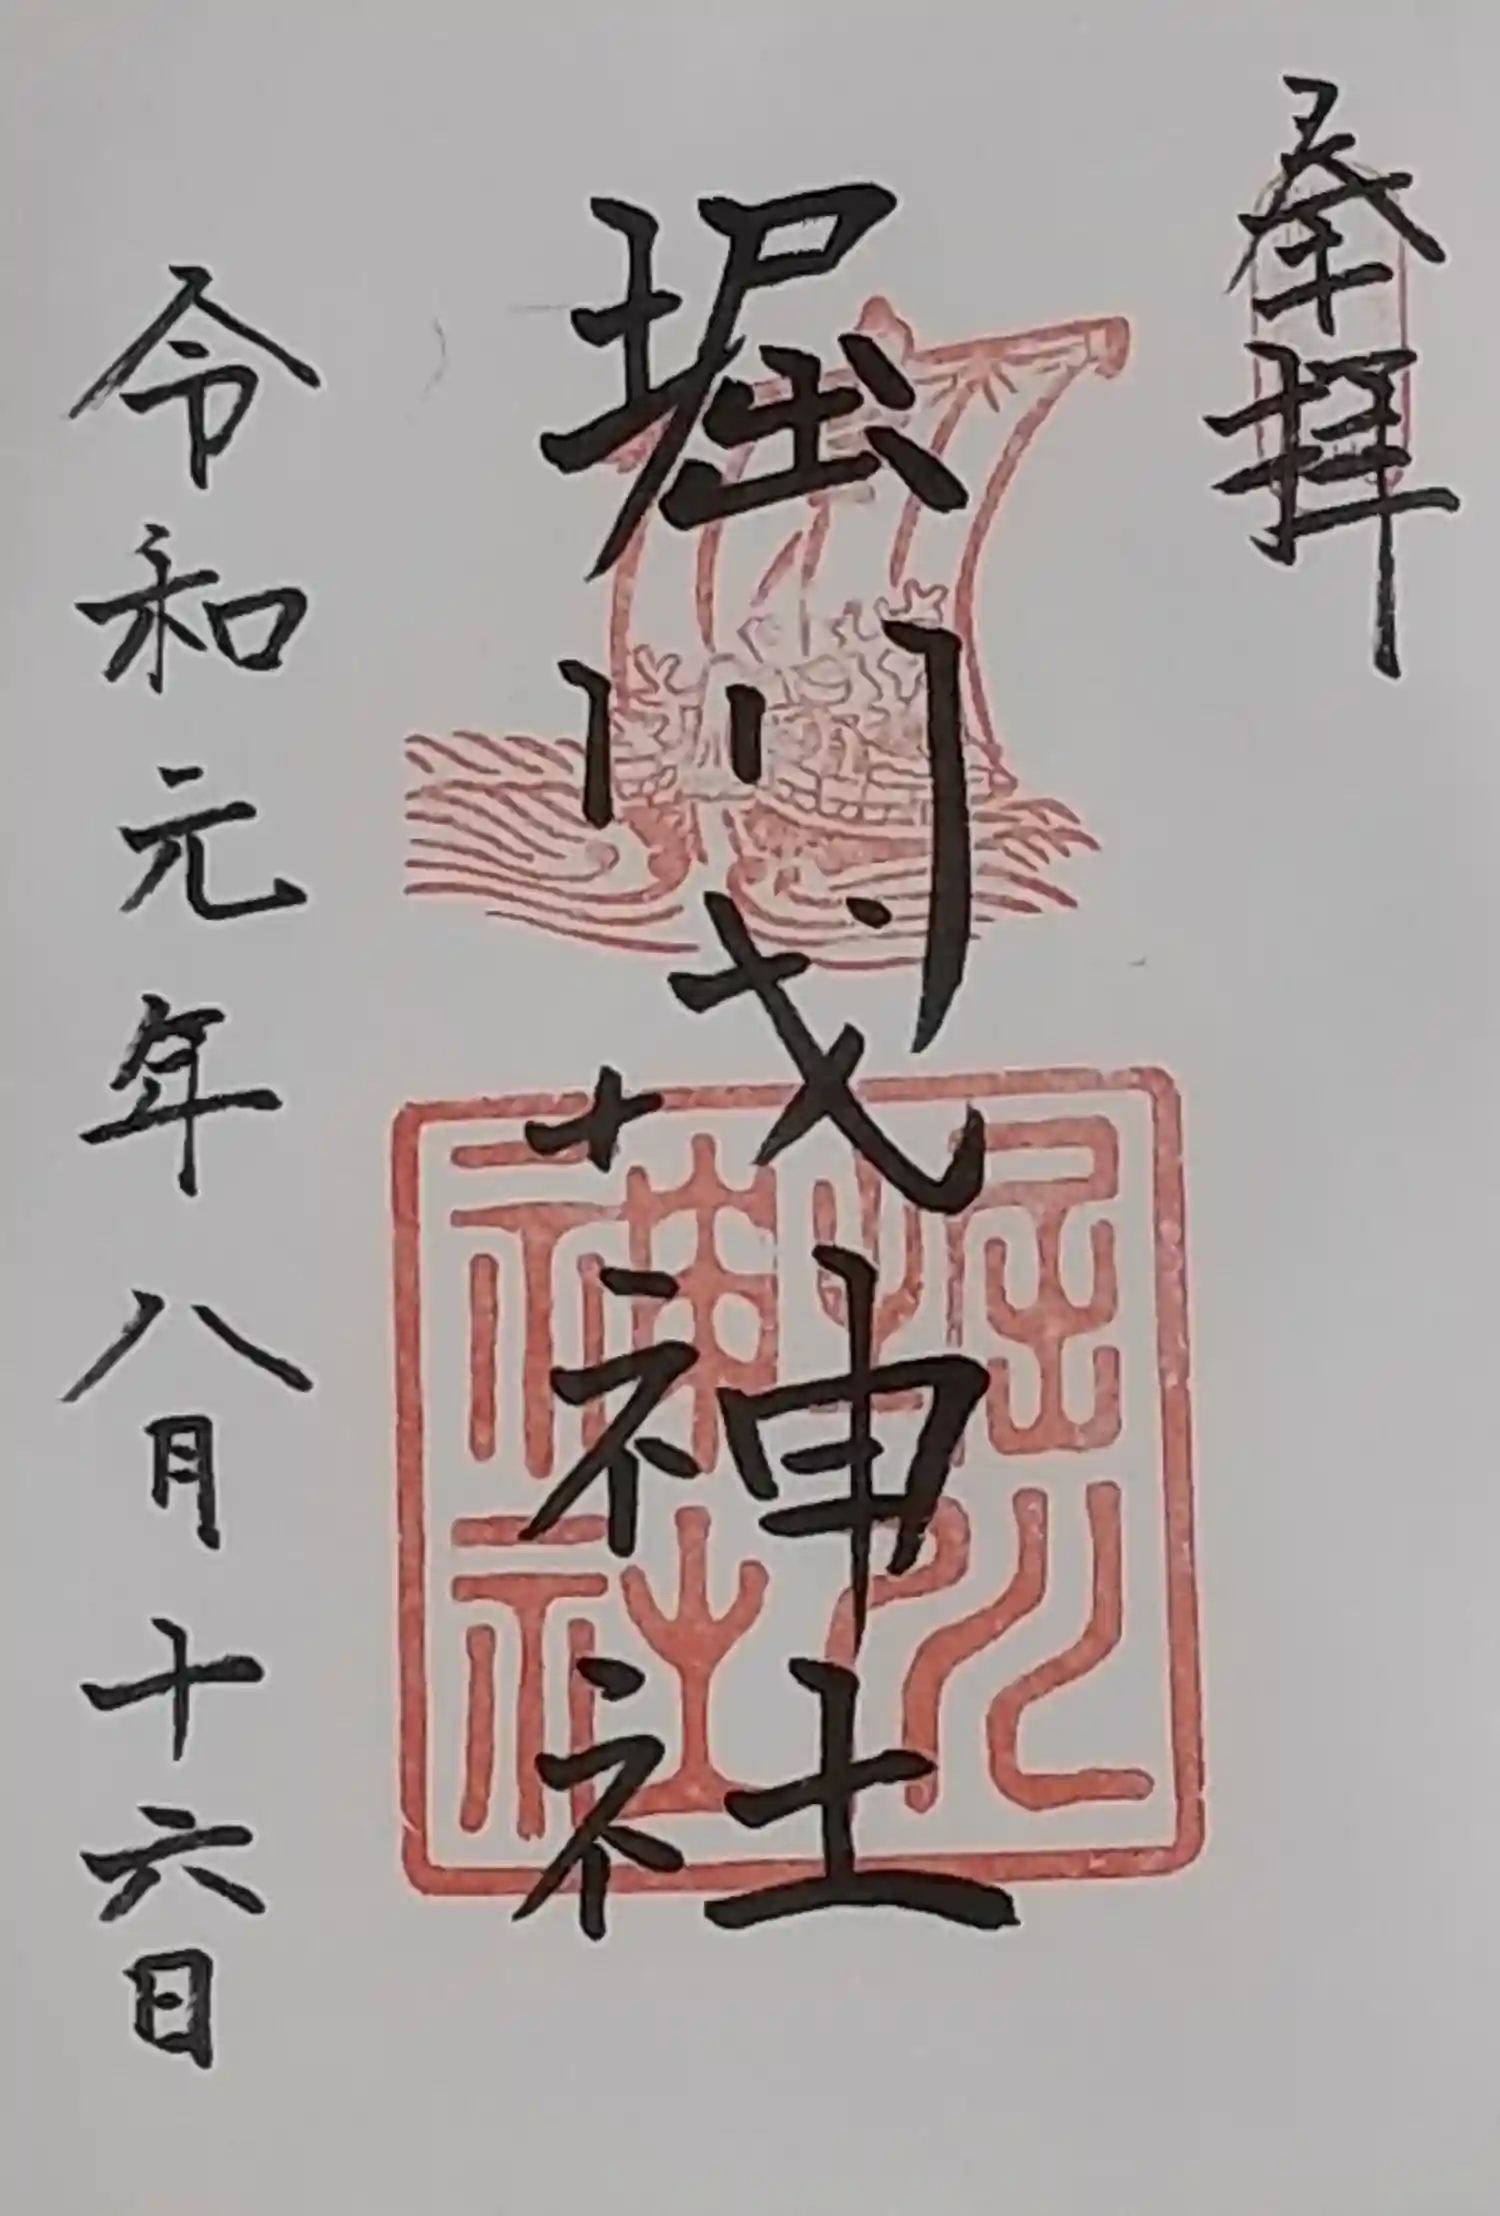 奉拝
堀川戎神社
令和元年八月十六日
堀川
神社